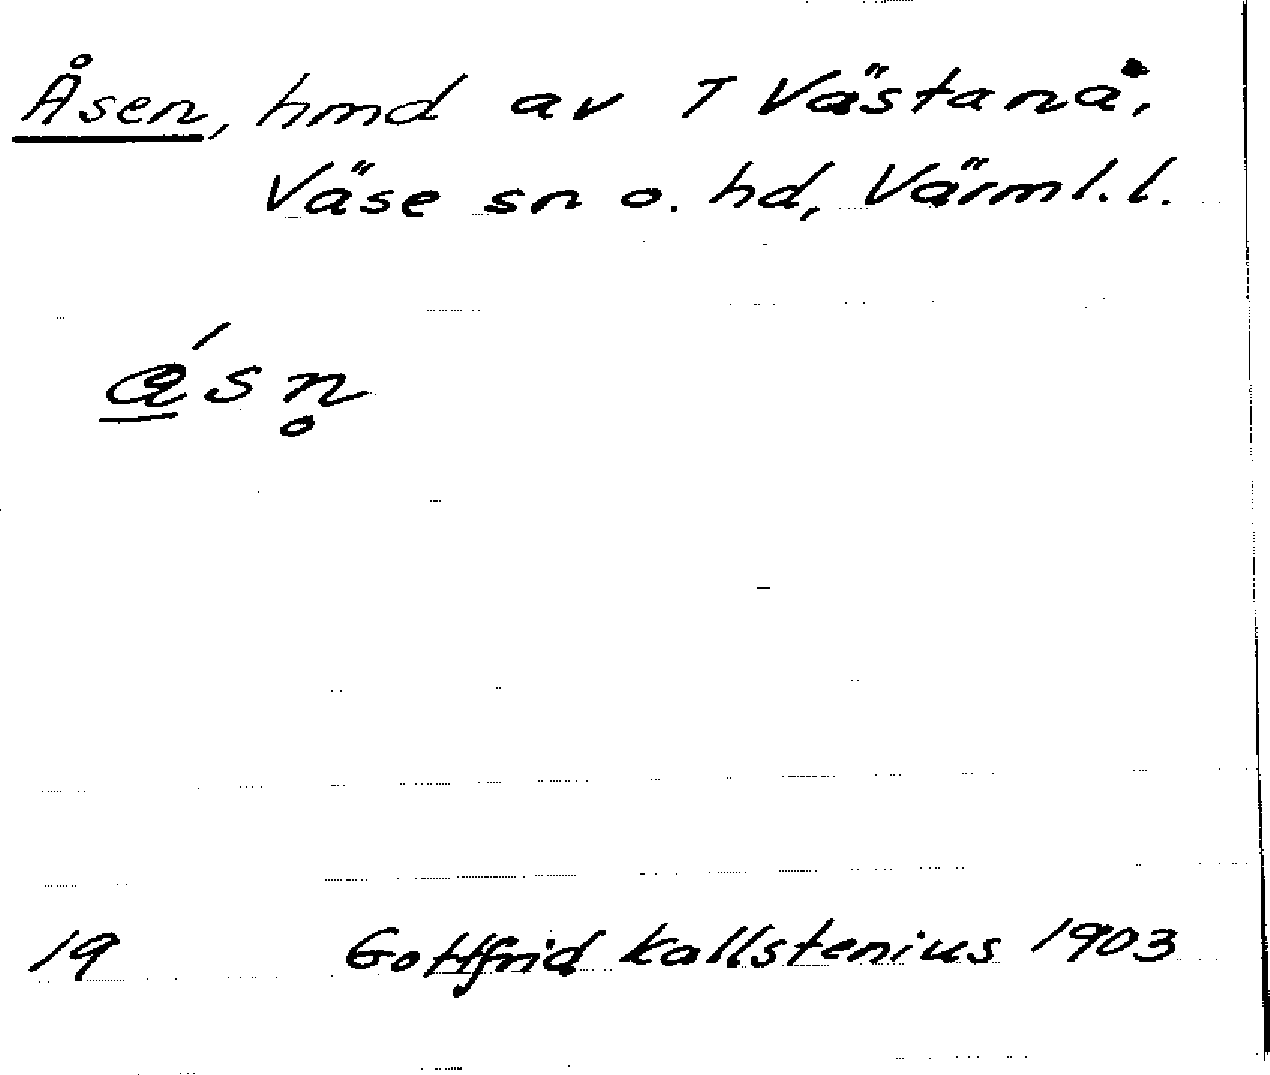 Åsen, hmd av T Västanå,
Väse sn o. hd, Värml. l.
á̱sn̥
19 Gottfrid Kallstenius 1903